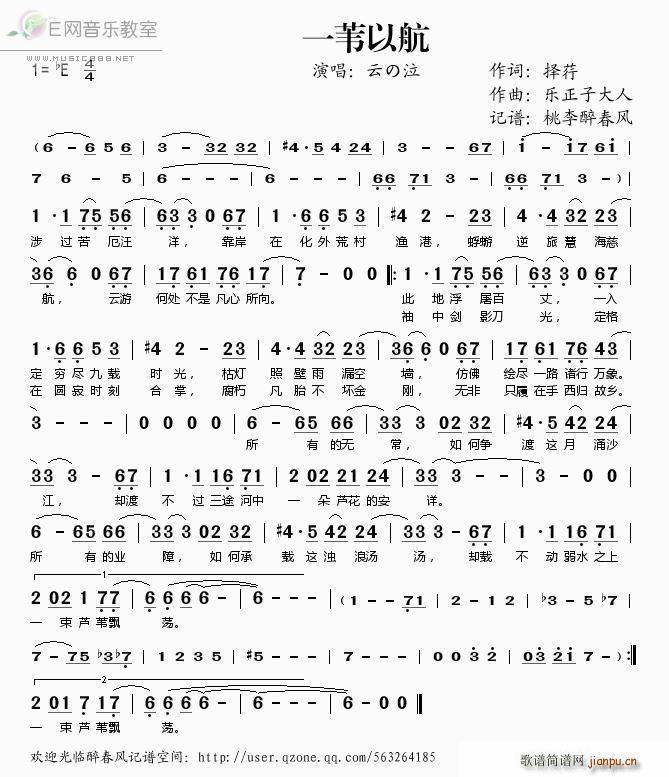 E网音乐教室
www.music888.net
一苇以航
1=♭E 4/4
演唱：云の泣
作词：择荇
作曲：乐正子大人
记谱：桃李醉春风
(6 - 6 5 6 | 3 - 32 32 | #4 · 5 4 24 | 3 - - 67 | i - i 17 6i |
7 6 - 5 | 6 - - - | 6 - - - | 66 71 3 - | 66 71 3 - ) |
1 · 1 75 56 | 63 3 0 67 | 1 · 6 6 5 3 | #4 2 - 23 | 4 · 4 32 23 |
涉 过 苦 厄汪 洋， 靠岸 在 化外荒村 渔 港， 蜉蝣 逆 旅慧 海慈
36 6 0 67 | 17 61 76 17 | 7 - 0 0 |: 1 · 1 75 56 | 63 3 0 67 |
航， 云游 何处 不是 凡心 所向。 此 地 浮 屠百 丈， 一入
袖 中 剑 影刀 光， 定格
1 · 6 6 5 3 | #4 2 - 23 | 4 · 4 32 23 | 36 6 0 67 | 17 61 76 17 |
定 穷尽九载 时 光， 枯灯 照 壁雨 漏空 墙， 仿佛 绘尽 一路 诸行 万象。
在 圆寂时刻 合 掌， 腐朽 凡 胎不 坏金 刚， 无非 只履 在手 西归 故乡。
3 - - - | 0 0 0 0 | 6 - 65 66 | 33 3 02 32 | #4 · 5 42 24 |
所 有的无 常， 如何争 渡 这 月 涌沙
33 3 - 67 | 1 · 1 16 71 | 2 02 21 24 | 33 3 - - | 3 - 0 0 |
江， 却渡 不 过三途河中 一 朵 芦花的安 详。
6 - 65 66 | 33 3 02 32 | #4 · 5 42 24 | 33 3 - 67 | 1 · 1 16 71 |
所 有的业 障， 如何承 载 这 浊 浪汤 汤， 却载 不 动弱水之上
1
2 02 1 77 | 6 66 6 6 - | 6 - - - | (1 - - 71 | 2 - 1 2 | ♭3 - 5 ♭7 |
一 束 芦苇飘 荡。
7 - 75 ♭3♭7 | 1 2 3 5 | #5 - - - | 7 - - - | 0 0 3 2 | 03 2i 7 - ) :|
2
2 01 7 17 | 6 66 6 6 - | 6 - 0 0 ‖
一 束芦苇飘 荡。
欢迎光临醉春风记谱空间：http://user.qzone.qq.com/563264185
歌谱简谱网
jianpu.cn